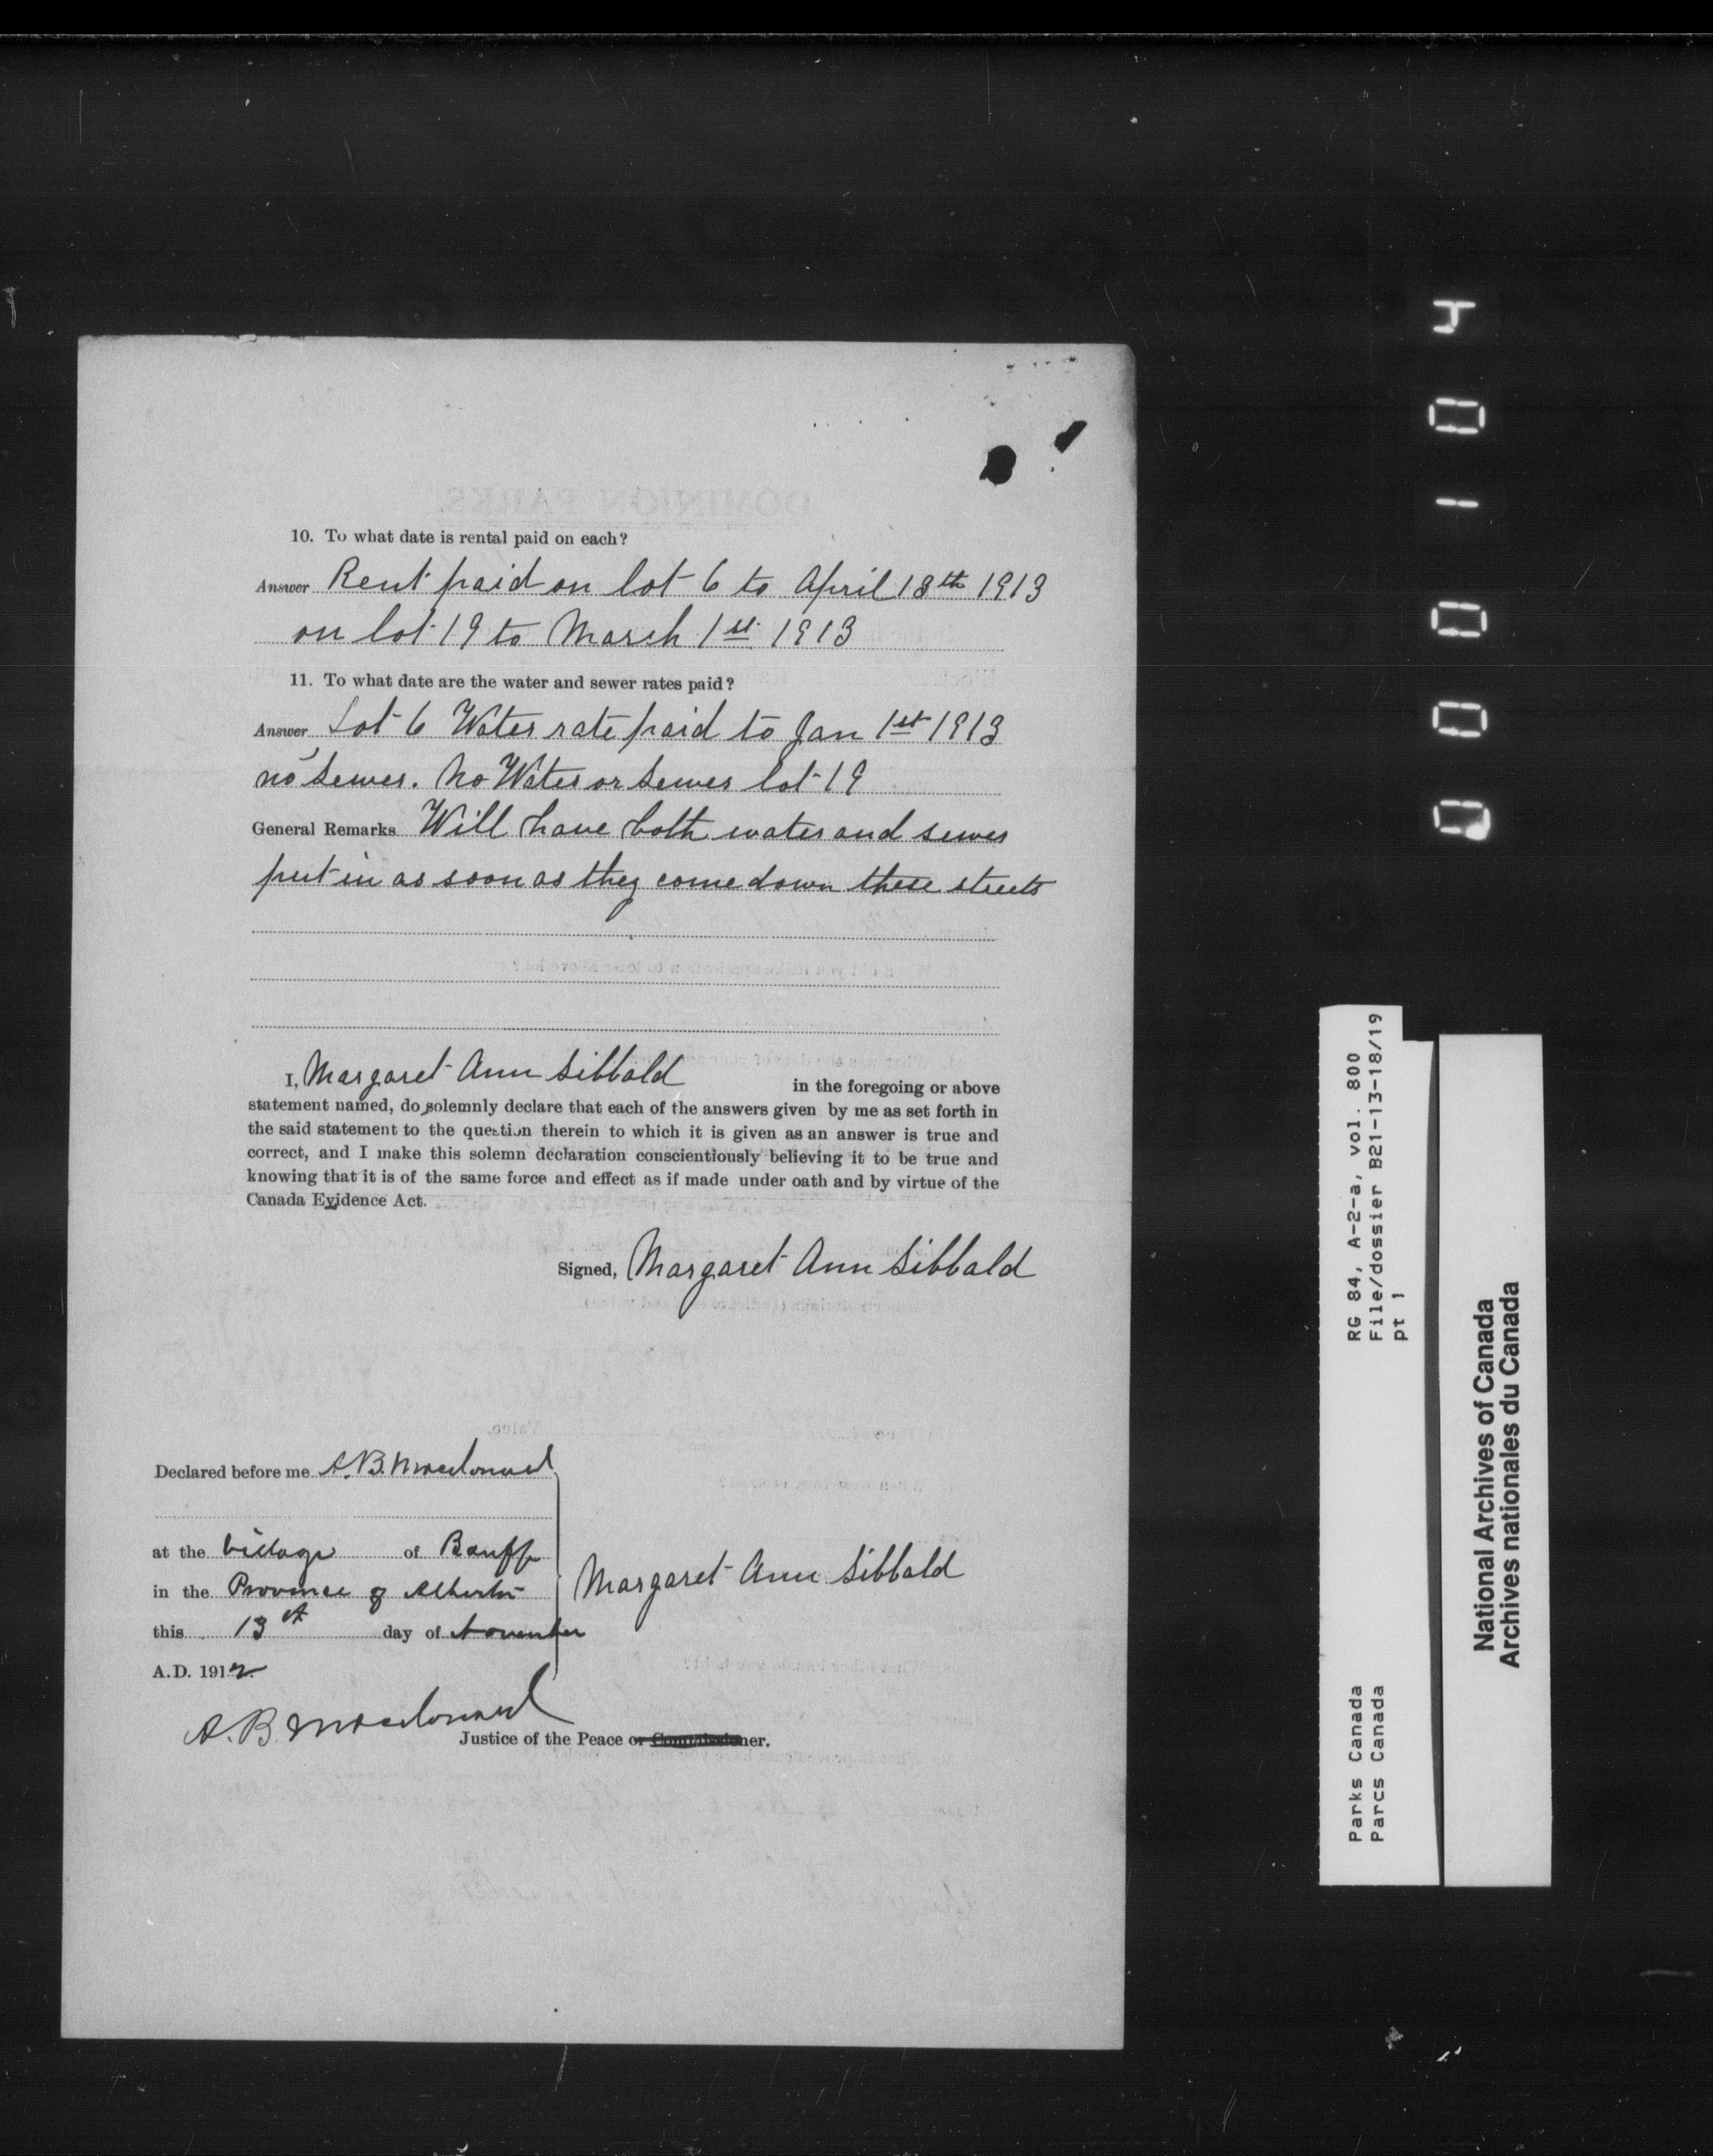 10. To what date is rental paid on each?
Answer Rent paid on lot 6 to April 18th 1913
on lot 19 to March 1st 1913
11. To what date are the water and sewer rates paid?
Answer Lot 6 Water rate paid to Jan 1st 1913
no sewer. No Water or Sewer lot 19
General Remarks Will have both water and sewer
put in as soon as they come down these streets
I, Margaret Ann Sibbald in the foregoing or above
statement named, do solemnly declare that each of the answers given by me as set forth in
the said statement to the question therein to which it is given as an answer is true and
correct, and I make this solemn declaration conscientiously believing it to be true and
knowing that it is of the same force and effect as if made under oath and by virtue of the
Canada Evidence Act.
Signed, Margaret Ann Sibbald
Declared before me A.B. Macdonald
at the village of Banff
in the Province of Alberta
this 13th day of November
A.D. 1912
Margaret Ann Sibbald
A.B. Macdonald
Justice of the Peace or Commissioner.
RG 84, A-2-a, vol. 800
File/dossier B21-13-18/19
pt 1
Parks Canada
Parcs Canada
National Archives of Canada
Archives nationales du Canada